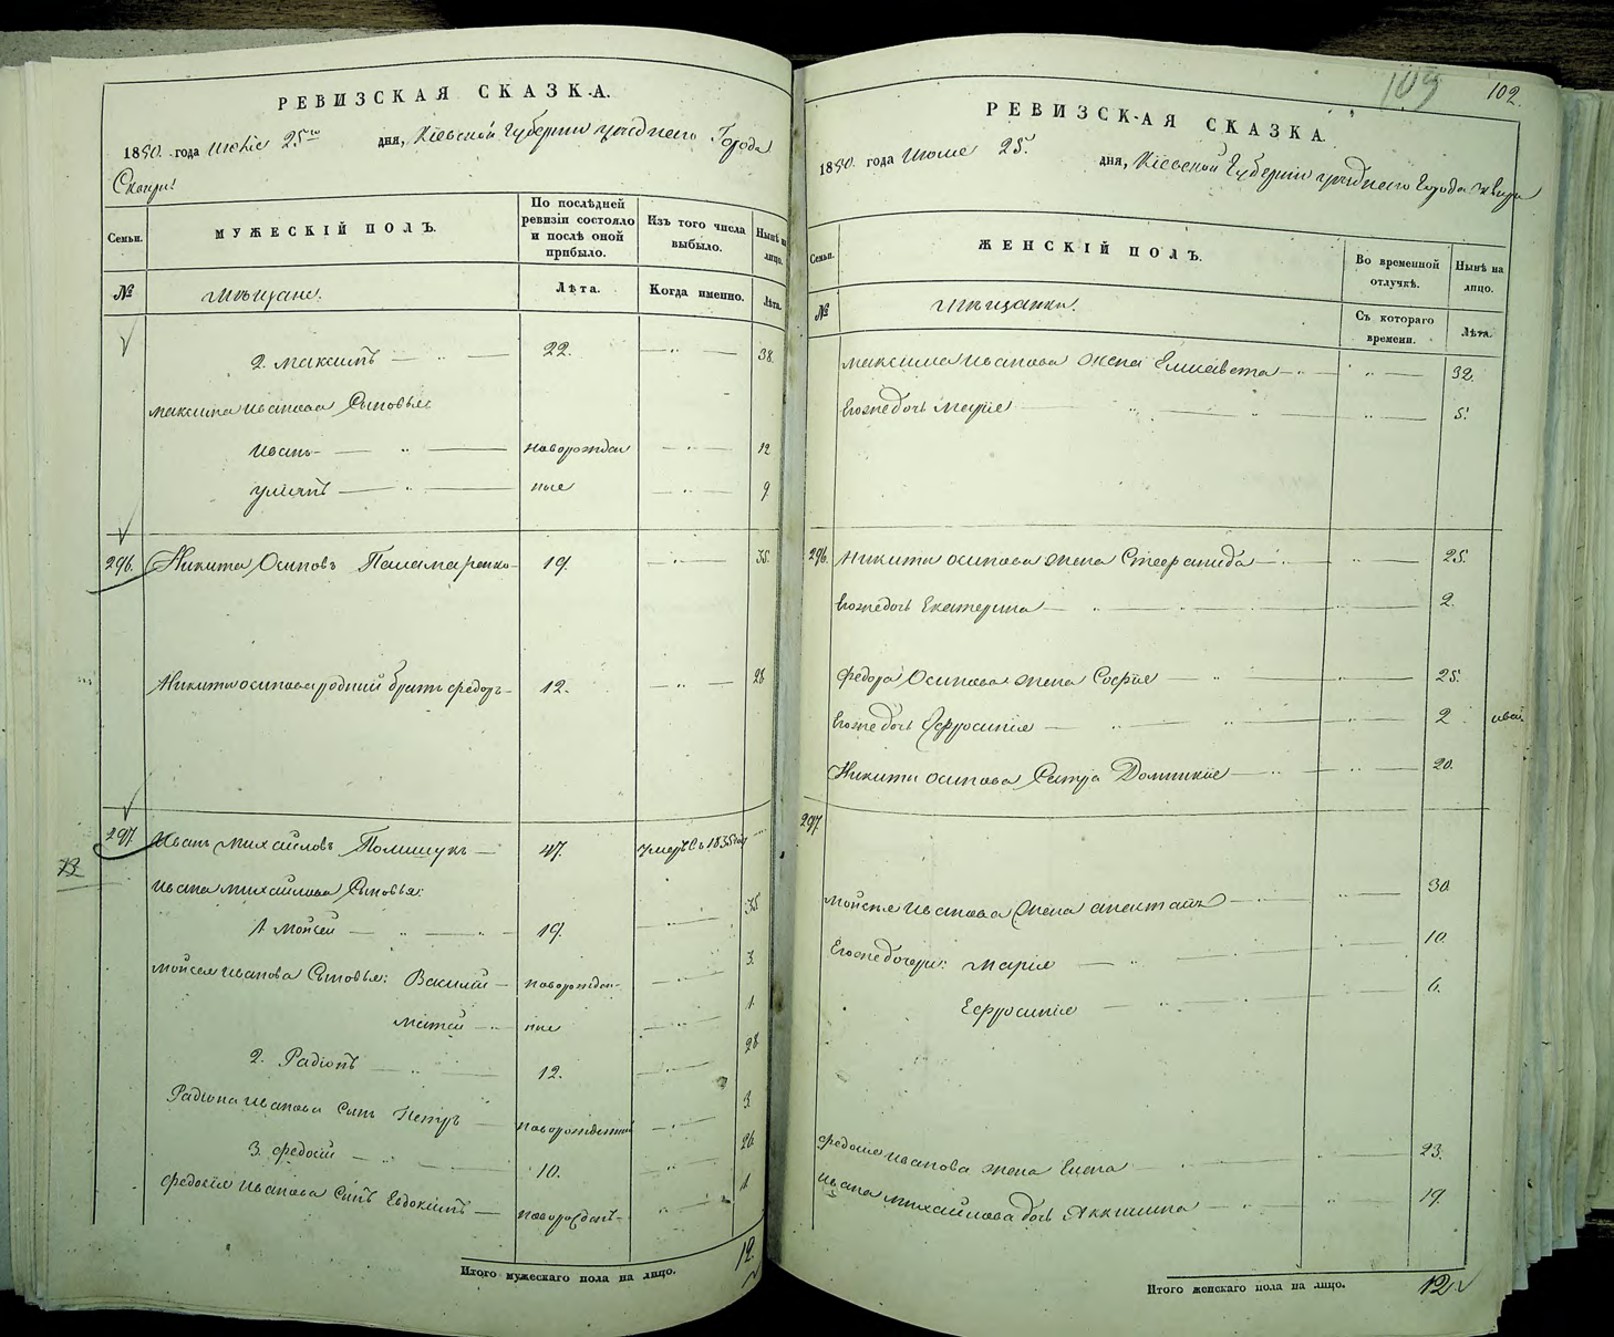 РЕВИЗСКАЯ СКАЗКА.
1850. года Июня 25го дня, Кіевской Губерніи уѣзднаго Города
Сквири
Семьи.
МУЖЕСКІЙ ПОЛЪ.
По послѣдней ревизіи состояло и послѣ оной прибыло.
Изъ того числа выбыло.
Нынѣ на лицо.
№
Мѣщане.
Лѣта.
Когда именно.
Лѣта.
2. Максимъ — 22. — 38.
Максима Иванова Сыновья:
Иванъ — новорожден — 12
Ульянъ — ные — 9
296. Никита Осиповъ Паламаренко 19. — 35.
Никиты Осипова родний братъ Федоръ 12. — 28
297. Иванъ Михайловъ Полищукъ — 47. умеръ въ 1835 году
Ивана Михайлова Сыновья:
1 Мойсей — 19. — 35
Мойсея Иванова Сыновья: Василий — новорожден — 3.
Матвей — ные — 1.
2. Радіонъ — 12. — 28
Радіона Иванова Сынъ Петръ — новорожденний — 3.
3. Федосій — 10. — 26
Федосія Иванова Сынъ Евдокимъ — 1.
Итого мужескаго пола на лицо. 12.
109 102.
РЕВИЗСКАЯ СКАЗКА.
1850. года Июня 25. дня, Кіевской Губерніи уѣзднаго Города Сквири
Семьи.
ЖЕНСКІЙ ПОЛЪ.
Во временной отлучкѣ.
Нынѣ на лицо.
№
Мѣщанки.
Съ котораго времени.
Лѣта.
Максима Иванова жена Елисавета — 32.
Его же дочь Марія — 5.
296. Никиты Осипова жена Стефанида — 25.
Его же дочь Екатерина — 2.
Федора Осипова жена Софія — 25.
Его же дочь Ефросинія — 2
Никиты Осипова Сестра Доминикія — 20.
297.
Мойсея Иванова жена — 30
Его же дочери: Марія — 10.
Ефросинія — 6.
Федосія Иванова жена Елена — 23.
Ивана Михайлова дочь Аккилина — 19.
Итого женскаго пола на лицо. 12.